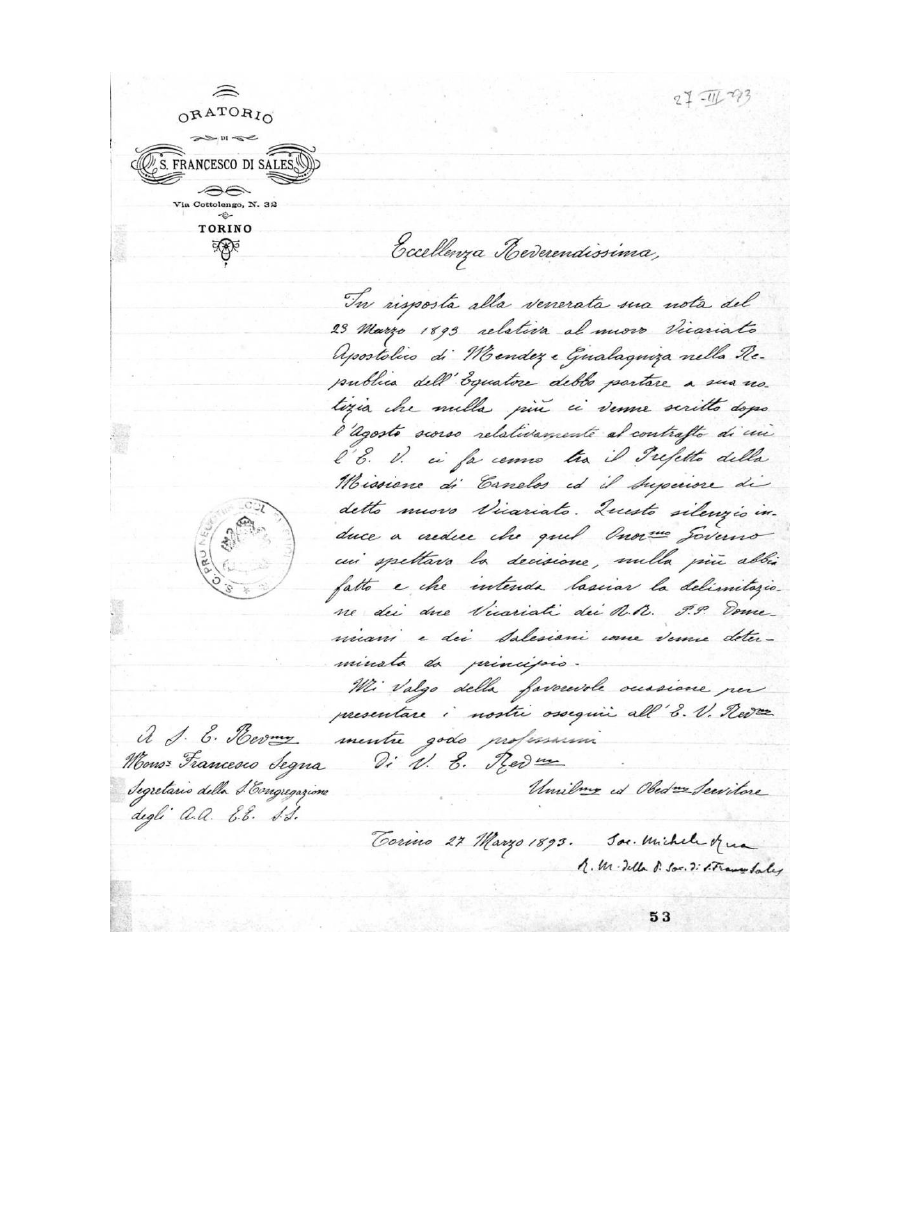 27-III-93
ORATORIO
DI
S. FRANCESCO DI SALES
Via Cottolengo, N. 32
TORINO
Eccellenza Reverendissima,
In risposta alla venerata sua nota del
23 Marzo 1893 relativa al nuovo Vicariato
Apostolico di Mendez e Gualaquiza nella Re-
pubblica dell'Equatore debbo portare a sua no-
tizia che nulla più ci venne scritto dopo
l'Agosto scorso relativamente al contrasto di cui
l'E. V. ci fa cenno tra il Prefetto della
Missione di Canelos ed il Superiore di
detto nuovo Vicariato. Questo silenzio in-
duce a credere che quel Onormo Governo
cui spettava la decisione, nulla più abbia
fatto e che intenda lasciar la delimitazio-
ne dei due Vicariati dei R.R. P.P. Dome-
nicani e dei Salesiani come venne deter-
minata da principio.
Mi valgo della favorevole occasione per
presentare i nostri ossequii all'E. V. Redma
mentre godo professarmi
Di V. E. Redma
Umilmo ed Obedmo Servitore
A S. E. Redma
Monsr Francesco Segna
Segretario della S. Congregazione
degli A.A. E.E. S.S.
Torino 27 Marzo 1893.
Sac. Michele Rua
R. M. della P. Soc. di S. Franco Sales
S. C. PRO NEGOTIIS ECCL.
53